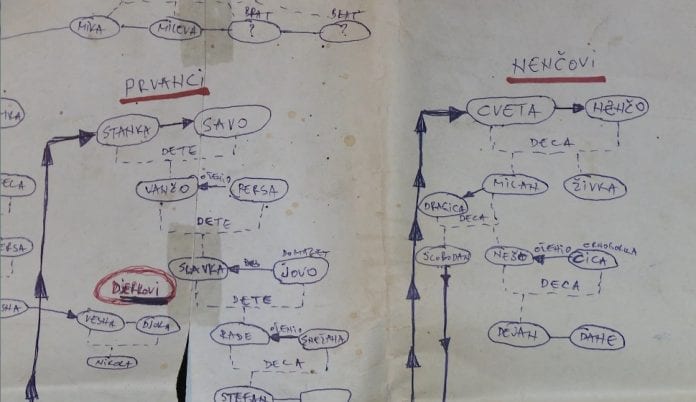 BRAT
BRAT
MIKA
MILEVA
?
?
PRVANCI
STANKA
SAVO
DETE
VANČO
OŽENIO
PERSA
DETE
SLAVKA
DOMAZET
JOVO
DJEKOVI
VESNA
DJOKA
NIKOLA
DETE
RADE
OŽENIO
SNEŽANA
DECA
STEFAN
NENČOVI
CVETA
NENČO
DECA
MILAN
ŽIVKA
DRAGICA
DECA
SLOBODAN
NEŠO
OŽENIO
CRNOGORKA
CICA
DECA
DEJAN
DANE